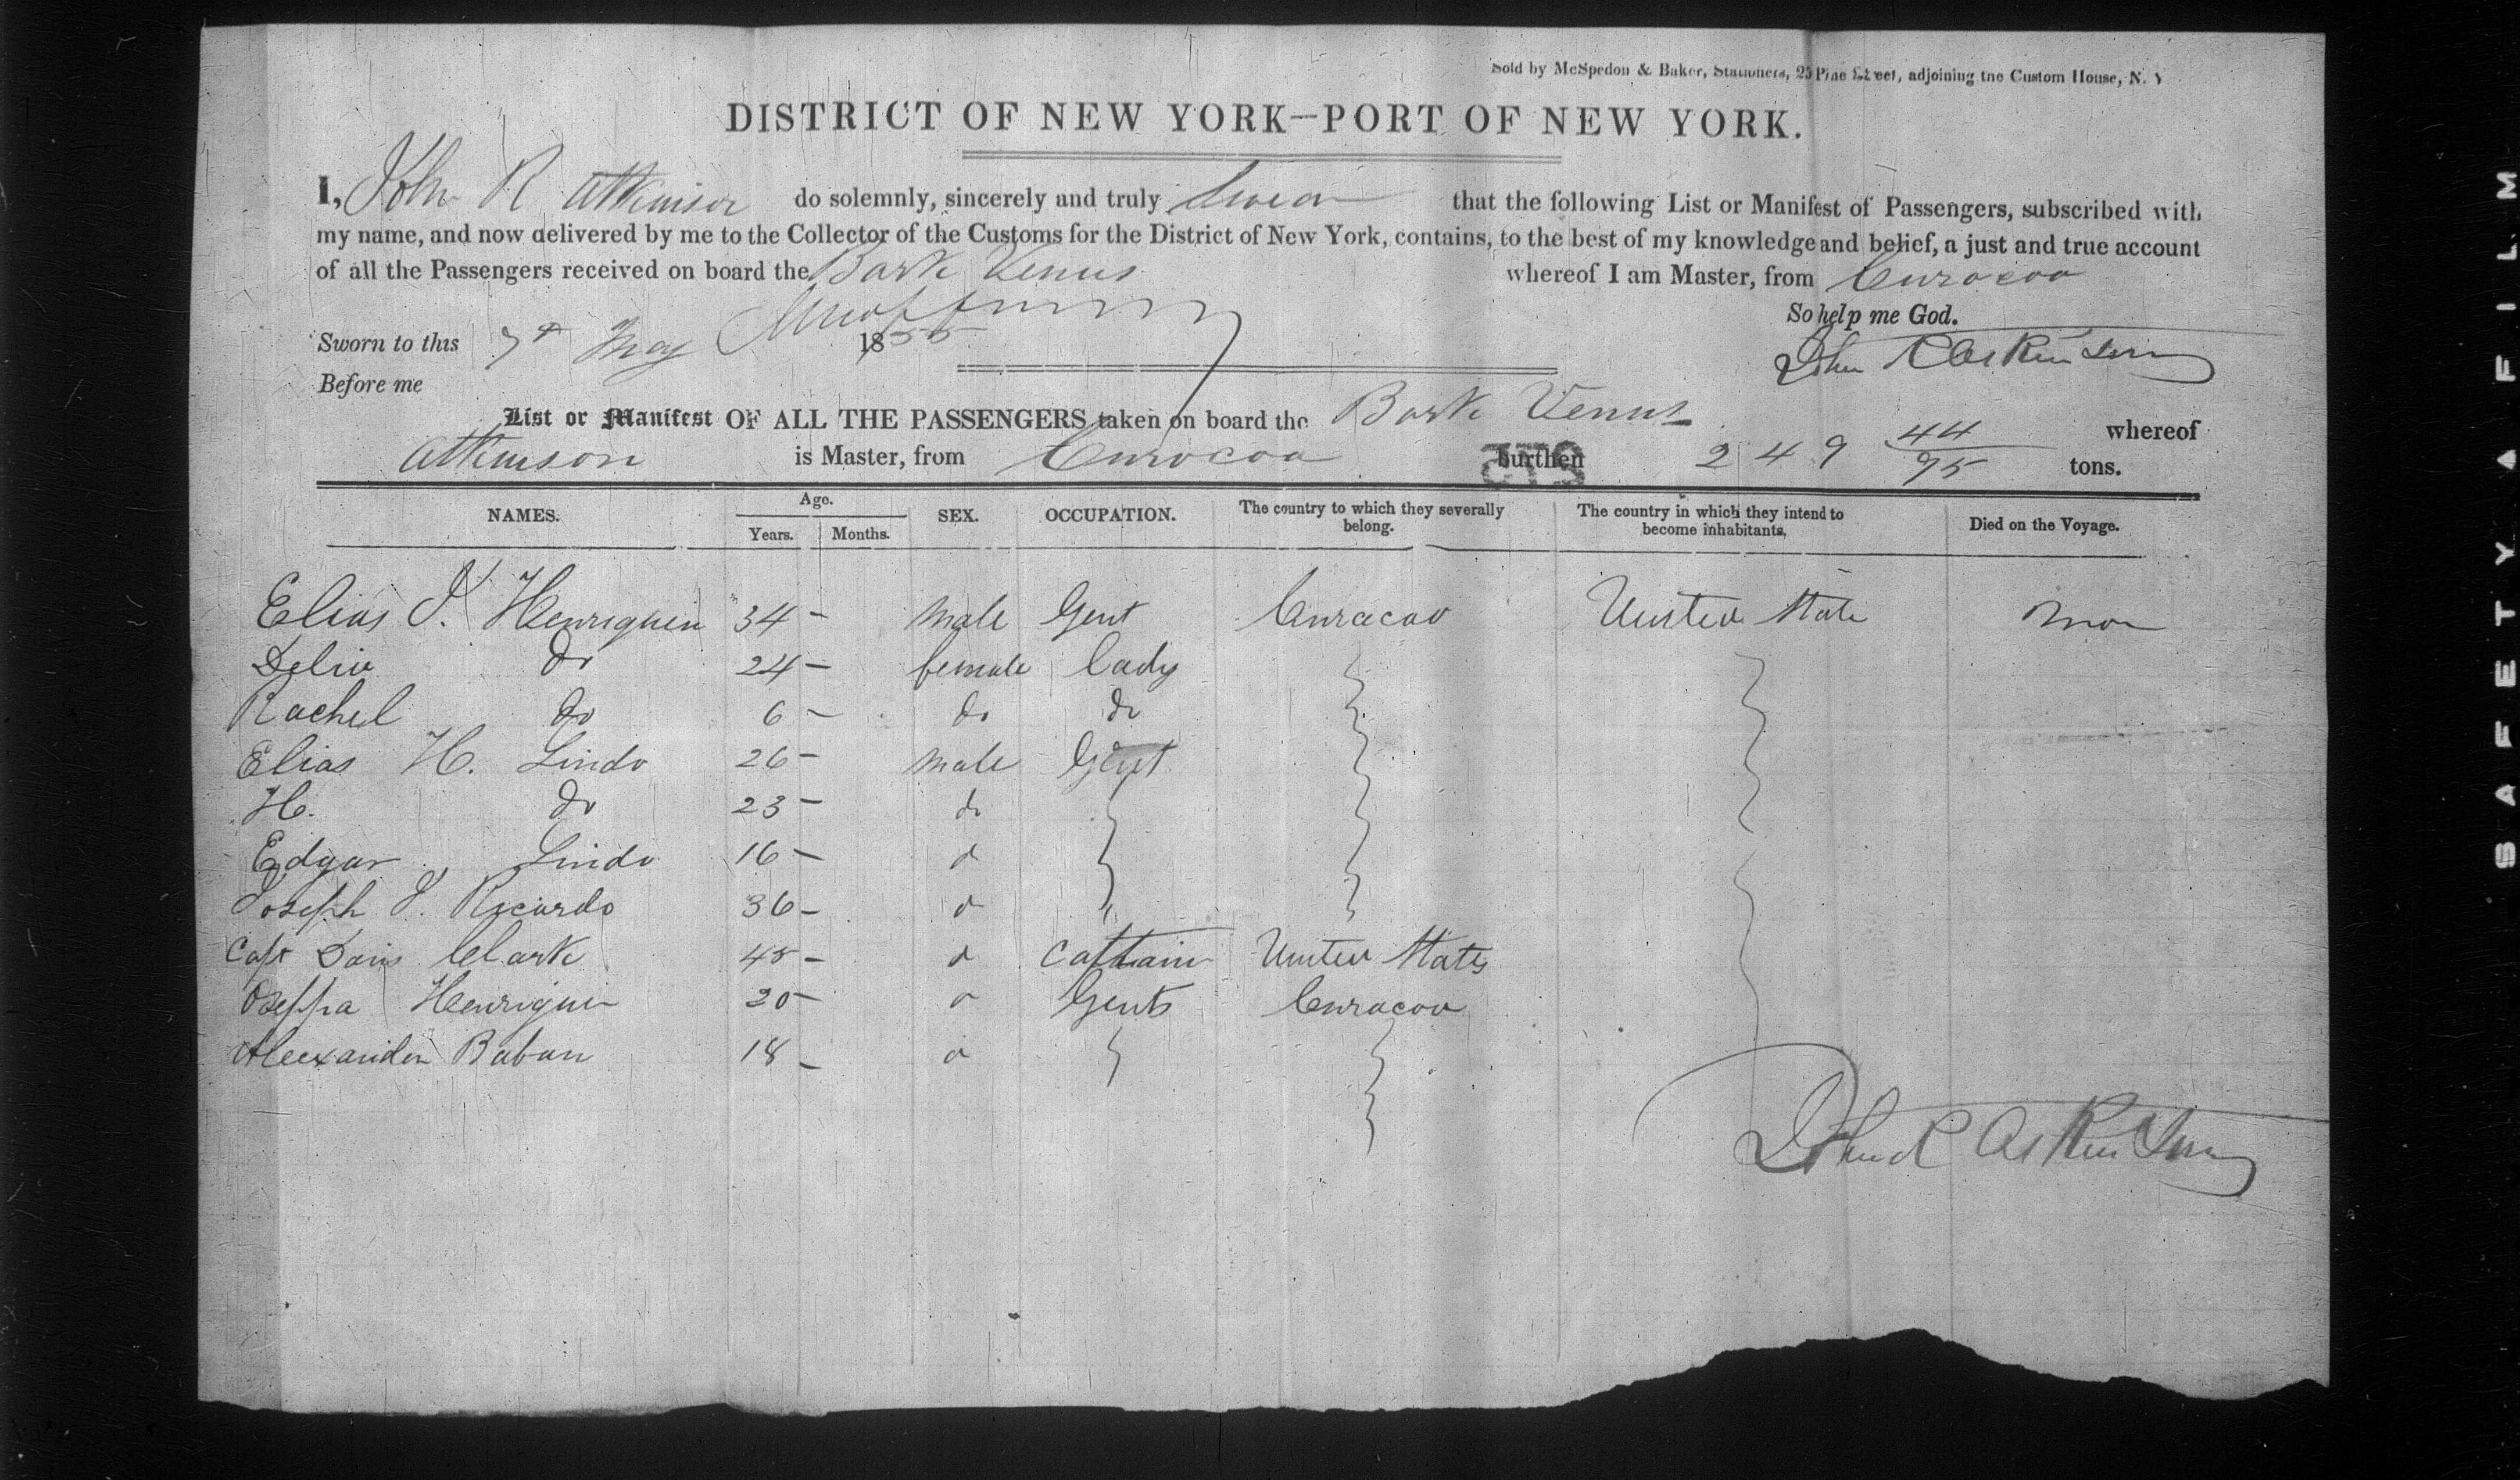 Sold by McSpedon & Baker, Stationers, 25 Pine Street, adjoining the Custom House, N. Y
DISTRICT OF NEW YORK—PORT OF NEW YORK.
I, John R Atkinson do solemnly, sincerely and truly Swear that the following List or Manifest of Passengers, subscribed with
my name, and now delivered by me to the Collector of the Customs for the District of New York, contains, to the best of my knowledge and belief, a just and true account
of all the Passengers received on board the Bark Venus whereof I am Master, from Curacoa
So help me God.
Sworn to this 7th May 1855 John R Atkinson
Before me
List or Manifest OF ALL THE PASSENGERS taken on board the Bark Venus whereof
Atkinson is Master, from Curocoa burthen 249 44/95 tons.
NAMES. Age. Years. Months. SEX. OCCUPATION. The country to which they severally belong. The country in which they intend to become inhabitants. Died on the Voyage.
Elias J. Henriquen 34 – Male Gent Curacao United State
Delia do 24 – female Lady
Rachel do 6 – do do
Elias H. Lindo 26 – Male Gent
H. do 23 – do
Edgar Lindo 16 – d
Joseph J. Ricardo 36 – d
Capt Davis Clark 45 – d Captain United States
Henriquen 20 – d Gents Curacoa
Alexander 18 – d
John R Atkinson
SAFETY FILM